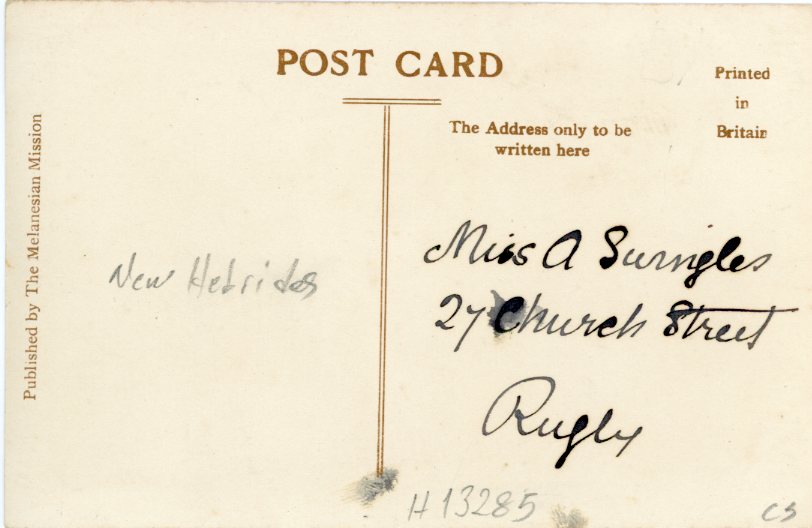 POST CARD
Printed
in
Britain
The Address only to be
written here
Published by The Melanesian Mission
New Hebrides
Miss A Swingles
27 Church Street
Rugby
H 13285
cs